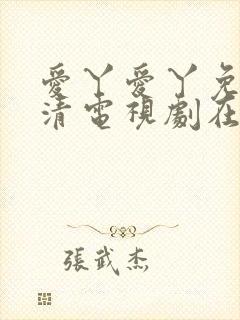 愛丫愛丫免
清電視劇在
張武杰